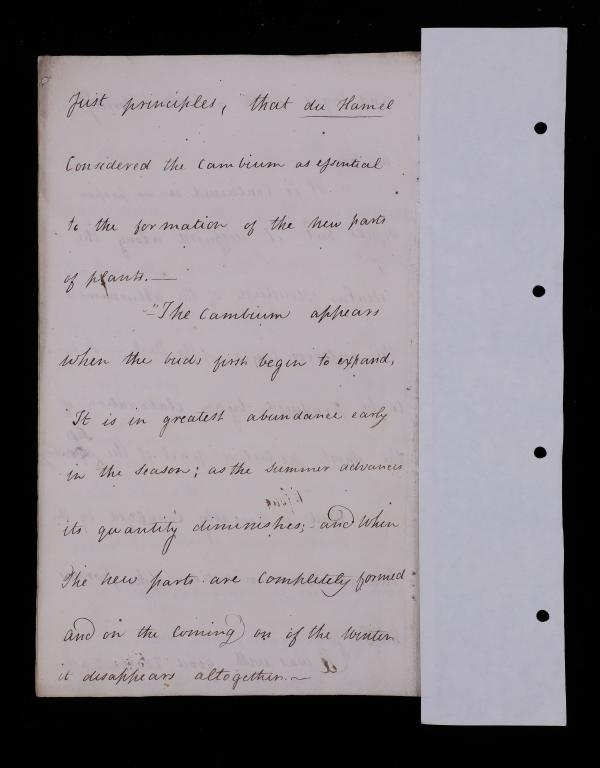 Just principles, that du Hamel
Considered the Cambium as essential
to the formation of the new parts
of plants. —
"The Cambium appears
When the buds first begin to expand,
It is in greatest abundance early
in the season; as the summer advances
its quantity diminishes; and When
The new parts are Completely formed
and on the coming on of the Winter
it disappears altogether. ~